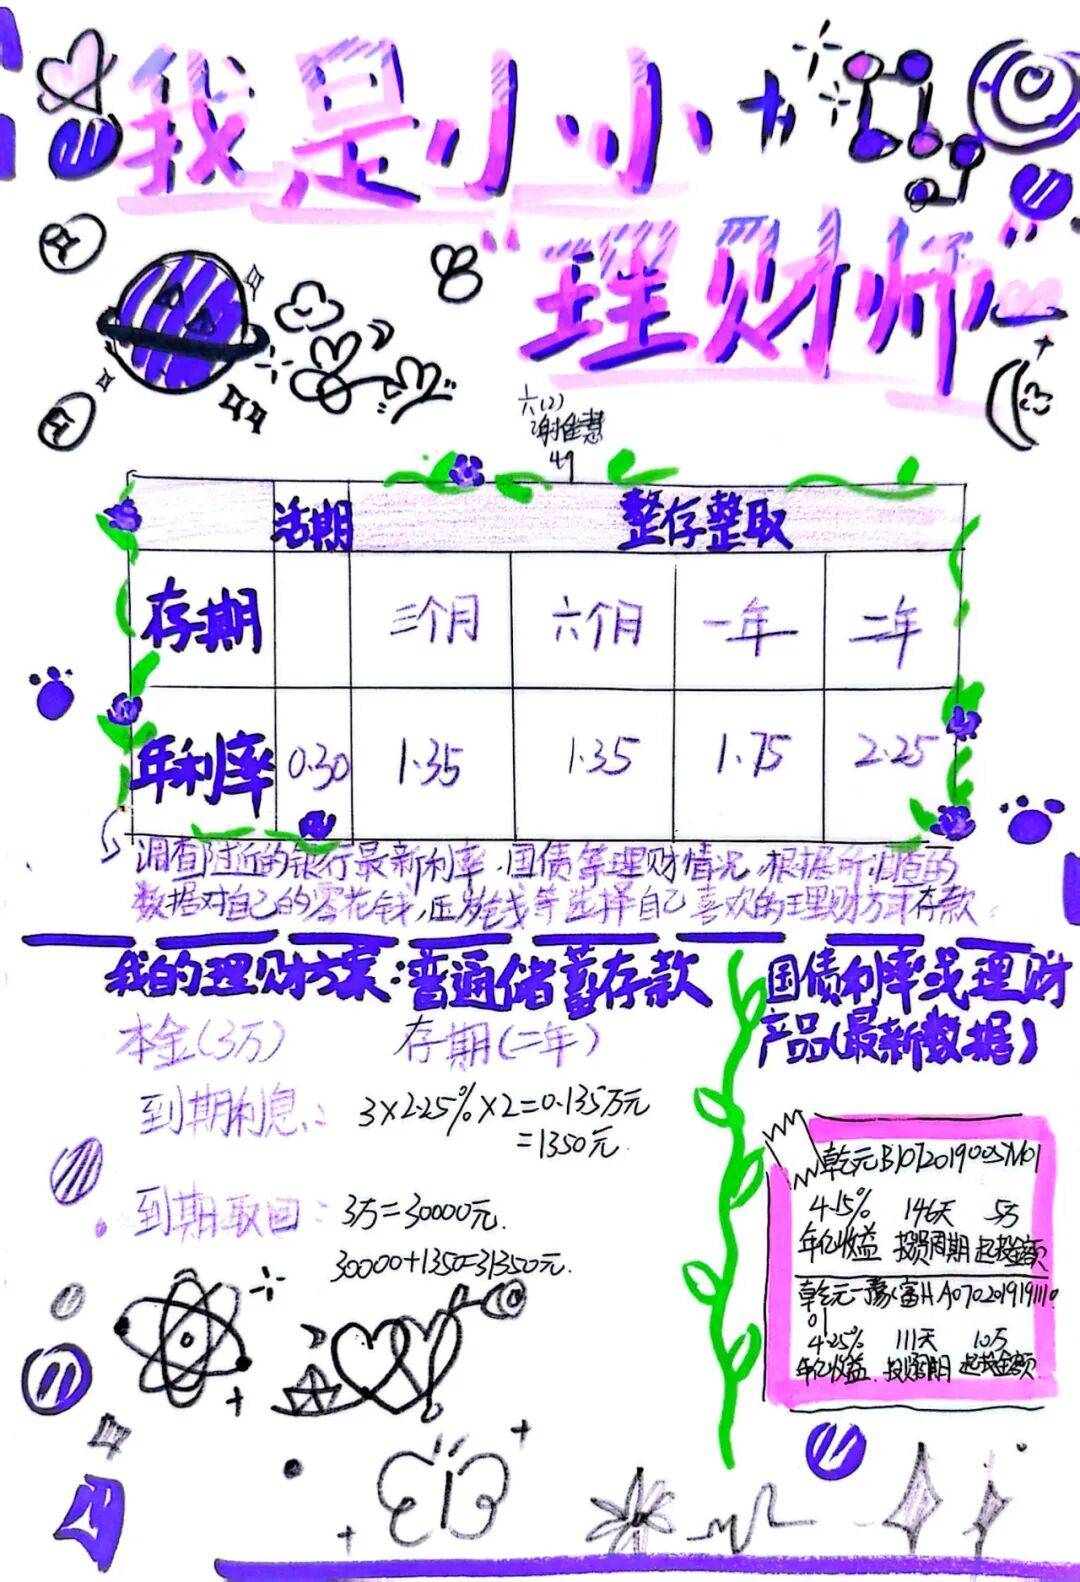 我是小小
“理财师”
六(2)
谢佳慧
49
活期 整存整取
存期 三个月 六个月 一年 二年
年利率 0.30 1.35 1.35 1.75 2.25
调查附近的银行最新利率、国债等理财情况,根据所调查的
数据对自己的零花钱,压岁钱等选择自己喜欢的理财方式存款
我的理财方案:普通储蓄存款
本金(3万) 存期(二年)
到期利息: 3×2.25%×2=0.135万元
=1350元
到期取回: 3万=30000元.
30000+1350=31350元.
国债利率或理财
产品(最新数据)
乾元B1072019005YM01
4.15% 146天 5万
年化收益 投资周期 起投金额
乾元-豫富H A070201919111
01
4.25% 111天 10万
年化收益 投资周期 起投金额